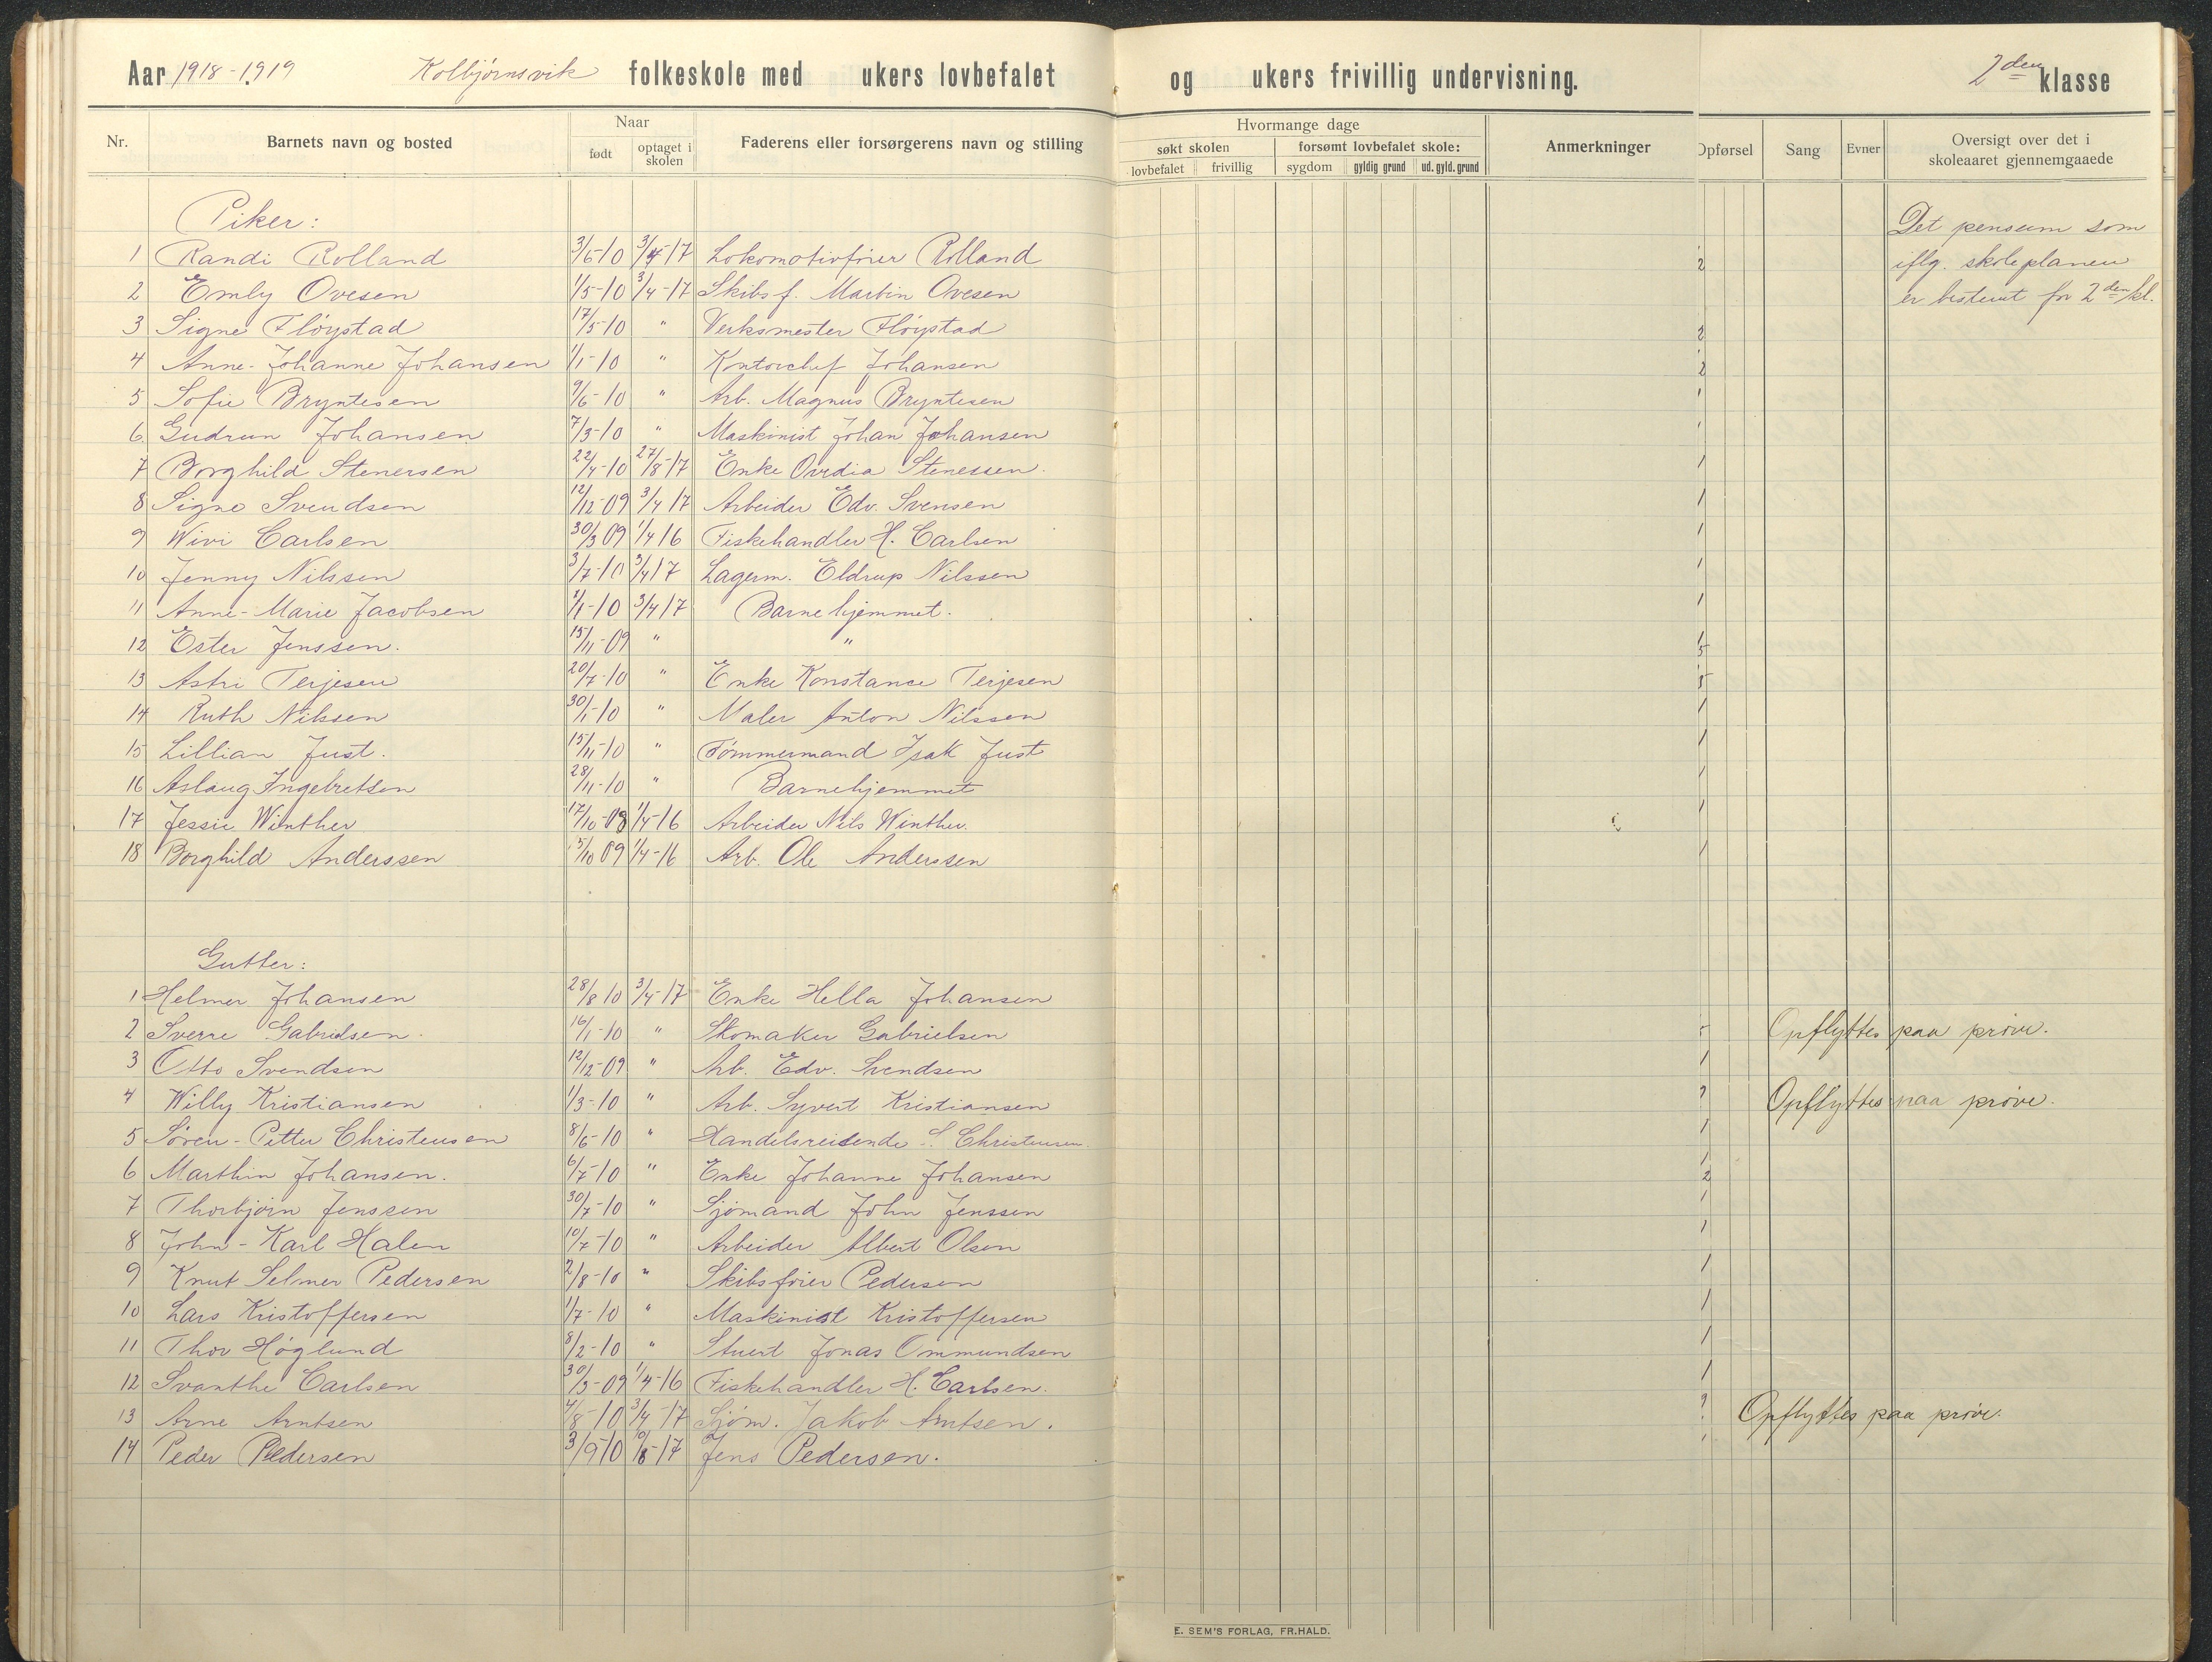 Aar 1918-1919 Kolbjørnsvik folkeskole med ukers lovbefalet og ukers frivillig undervisning. 2den klasse
Nr. Barnets navn og bosted Naar født optaget i skolen Faderens eller forsørgerens navn og stilling Hvormange dage søkt skolen lovbefalet frivillig forsømt lovbefalet skole: sygdom gyldig grund ud. gyld. grund Anmerkninger Opførsel Sang Evner Oversigt over det i skoleaaret gjennemgaaede
Piker:
Det pensum som
iflg. skoleplanen
er bestemt for 2den kl.
1 Randi Rolland 3/6-10 3/4-17 Lokomotivfører Rolland
2 Emly Ovesen 1/5-10 3/4-17 Skibsf. Martin Ovesen
3 Signe Fløystad 17/5-10 " Verksmester Fløystad
4 Anne-Johanne Johansen 1/1-10 " Kontorchef Johansen
5 Sofie Bryntesen 9/6-10 " Arb. Magnus Bryntesen
6 Gudrun Johansen 7/3-10 " Maskinist Johan Johansen
7 Borghild Stenersen 22/4-10 27/8-17 Enke Ovidia Stenessen.
8 Signe Svendsen 12/12-09 3/4 17 Arbeider Edv. Svensen
9 Wivi Carlsen 30/3 09 1/4 16 Fiskehandler H. Carlsen
10 Jenny Nilssen 3/7-10 3/4 17 Lagerm. Eldrup Nilssen
11 Anne-Marie Jacobsen 1/1-10 3/4 17 Barnehjemmet.
12 Ester Jenssen. 15/11-09 " "
13 Astri Terjesen 20/7-10 " Enke Konstance Terjesen
14 Ruth Nilssen 30/1-10 " Maler Anton Nilssen
15 Lillian Just. 15/11-10 " Tømmermand Isak Just
16 Aslaug Ingebretsen 28/11-10 " Barnehjemmet
17 Jessie Winther 17/10-09 1/4-16 Arbeider Nils Winther.
18 Borghild Anderssen 15/10 09 1/4-16 Arb. Ole Anderssen
Gutter:
1 Helmer Johansen 28/8 10 3/4-17 Enke Hella Johansen
2 Sverre Gabrielsen. 16/1-10 " Skomaker Gabrielsen Opflyttes paa prøve.
3 Otto Svendsen 12/12-09 " Arb. Edv. Svendsen
4 Willy Kristiansen 1/3-10 " Arb. Syvert Kristiansen Opflyttes paa prøve.
5 Søren-Petter Christensen 8/6-10 " Handelsreisende S. Christensen.
6 Marthin Johansen. 6/7-10 " Enke Johanne Johansen
7 Thorbjørn Jenssen 30/7-10 " Sjømand John Jenssen
8 John-Karl Halen 10/7-10 " Arbeider Albert Olsen
9 Knut Selmer Pedersen 2/8-10 " Skibsfører Pedersen
10 Lars Kristoffersen 1/7-10 " Maskinist Kristoffersen
11 Thor Høglund 8/2-10 " Stuert Jonas Ommundsen
12 Svanthe Carlsen 30/3-09 1/4-16 Fiskehandler H. Carlsen.
13 Arne Arntsen 4/8-10 3/4-17 Sjøm. Jakob Arntsen. Opflyttes paa prøve.
14 Peder Pedersen 3/9 10 10/8-17 Jens Pedersen.
E. SEM'S FORLAG, FR.HALD.